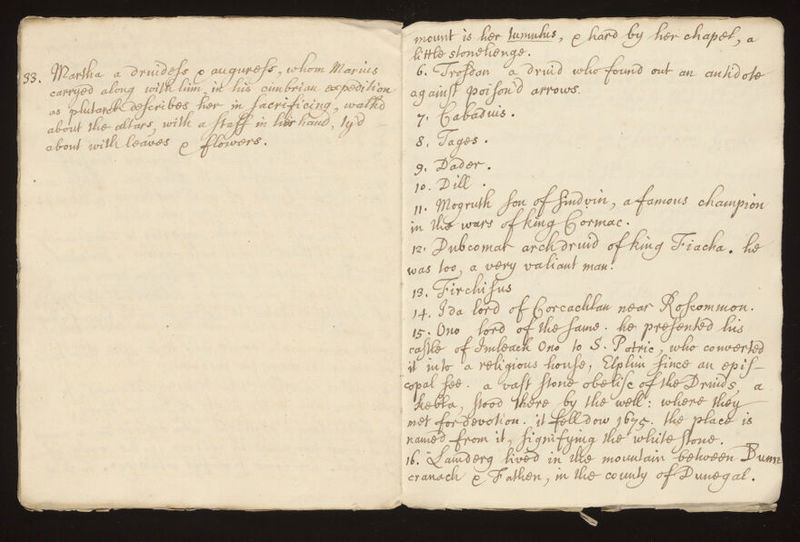 33. Martha a druidess & auguress, whom Marius
carryed along with him, in his cimbrian expedition
as plutarch describes her in sacrificing, walk'd
about the altars, with a staff in her hand, ty'd
about with leaves & flowers.
mount is her tumulus, & hard by her chapel, a
little stonehenge.
6. Trosdan a druid who found out an antidote
against poison'd arrows.
7. Cabaduis.
8. Tages.
9. Dader.
10. Dill.
11. Mogruth son of Sindvin, a famous champion
in the wars of king Cormac.
12. Dubcomar archdruid of king Fiacha. he
was too, a very valiant man.
13. Firchisus
14. Ida lord of Corcachlan near Roscommon.
15. Ono lord of the same. he presented his
castle of Imleach Ono to S. Patric, who converted
it into a religious house, Elphin since an epis-
copal see. a vast stone obelisc of the Druids, a
kebla, stood there by the well: where they
met for devotion. it fell dow 1675. the place is
named from it, signifying the white stone.
16. Lamderg lived in the mountain between Bunn
cranach & Fathen, in the county of Dunegal.